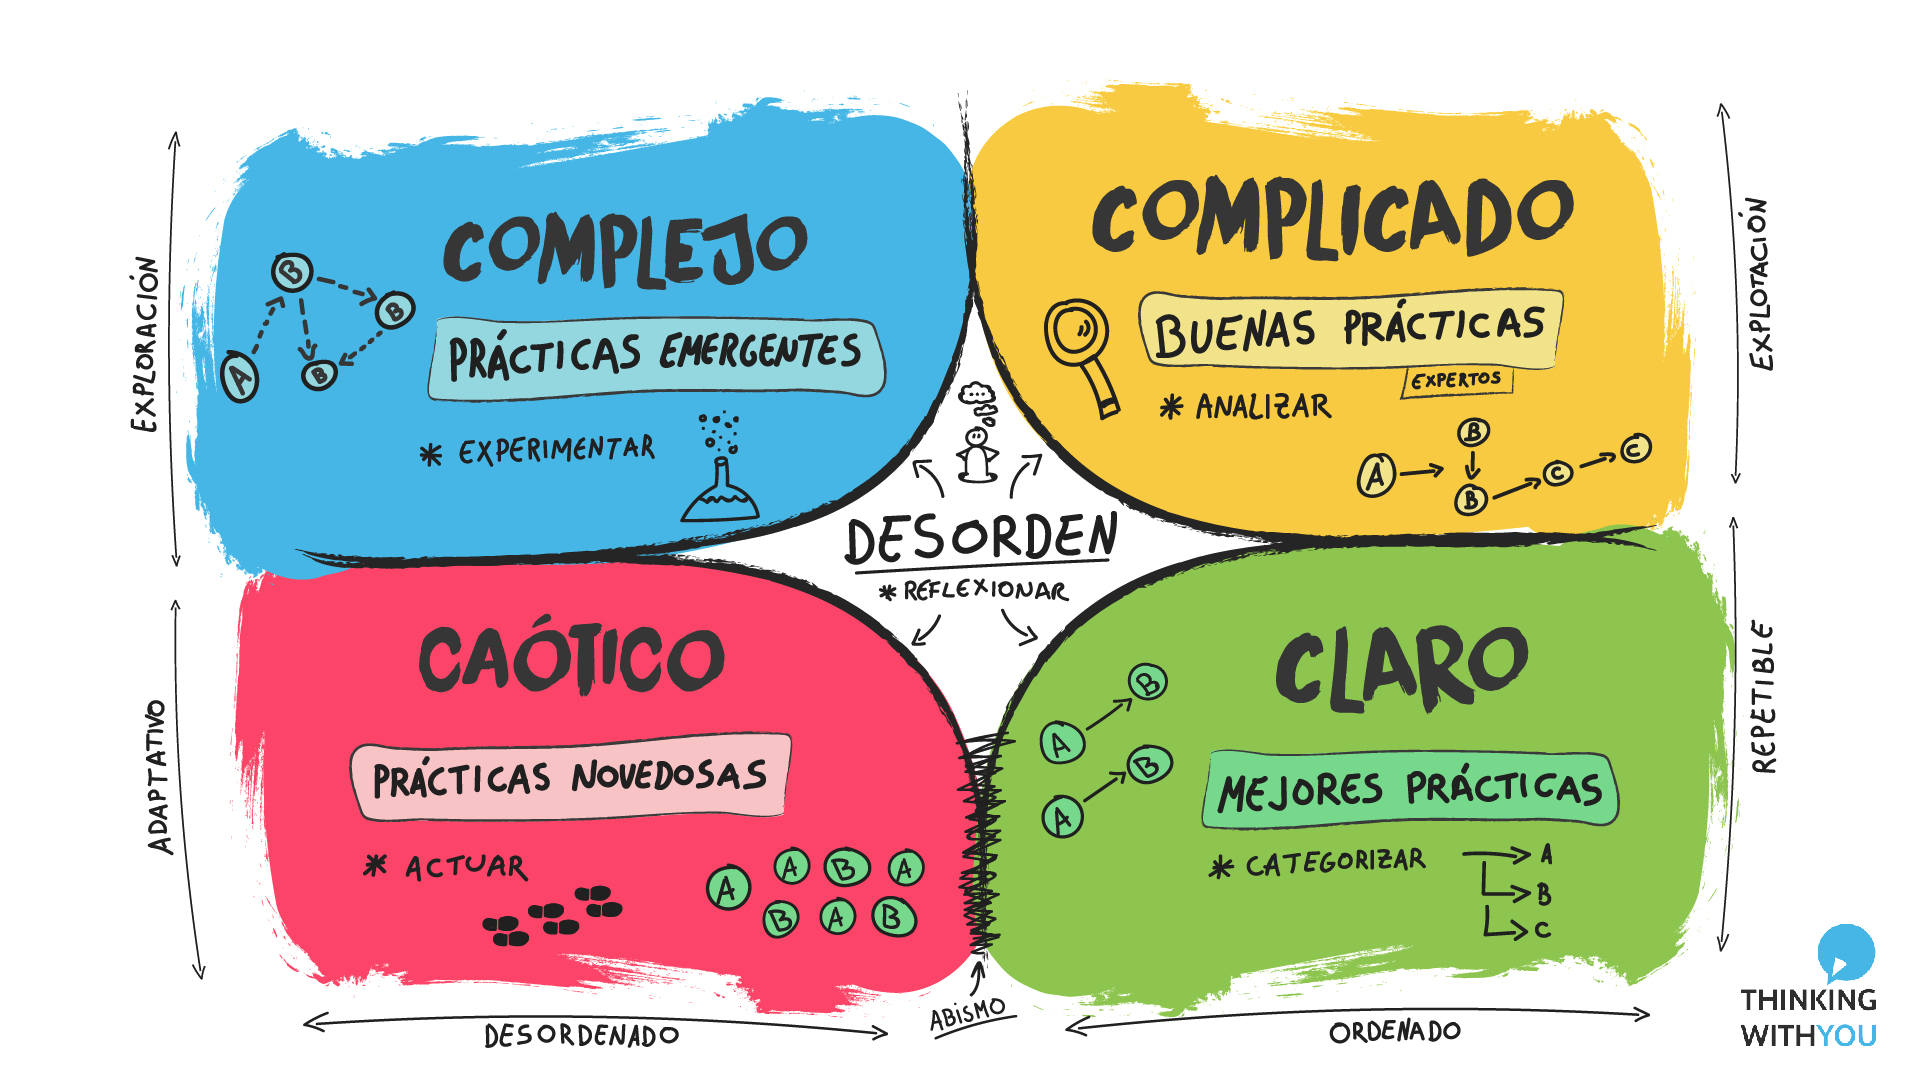 EXPLORACIÓN
ADAPTATIVO
COMPLEJO
PRÁCTICAS EMERGENTES
* EXPERIMENTAR
A
B
B
B
COMPLICADO
BUENAS PRÁCTICAS
EXPERTOS
* ANALIZAR
A
B
B
C
C
EXPLOTACIÓN
REPETIBLE
DESORDEN
* REFLEXIONAR
CAÓTICO
PRÁCTICAS NOVEDOSAS
* ACTUAR
A
A
B
A
B
A
B
CLARO
MEJORES PRÁCTICAS
* CATEGORIZAR
A
B
A
B
A
B
C
DESORDENADO
ABISMO
ORDENADO
THINKING
WITHYOU